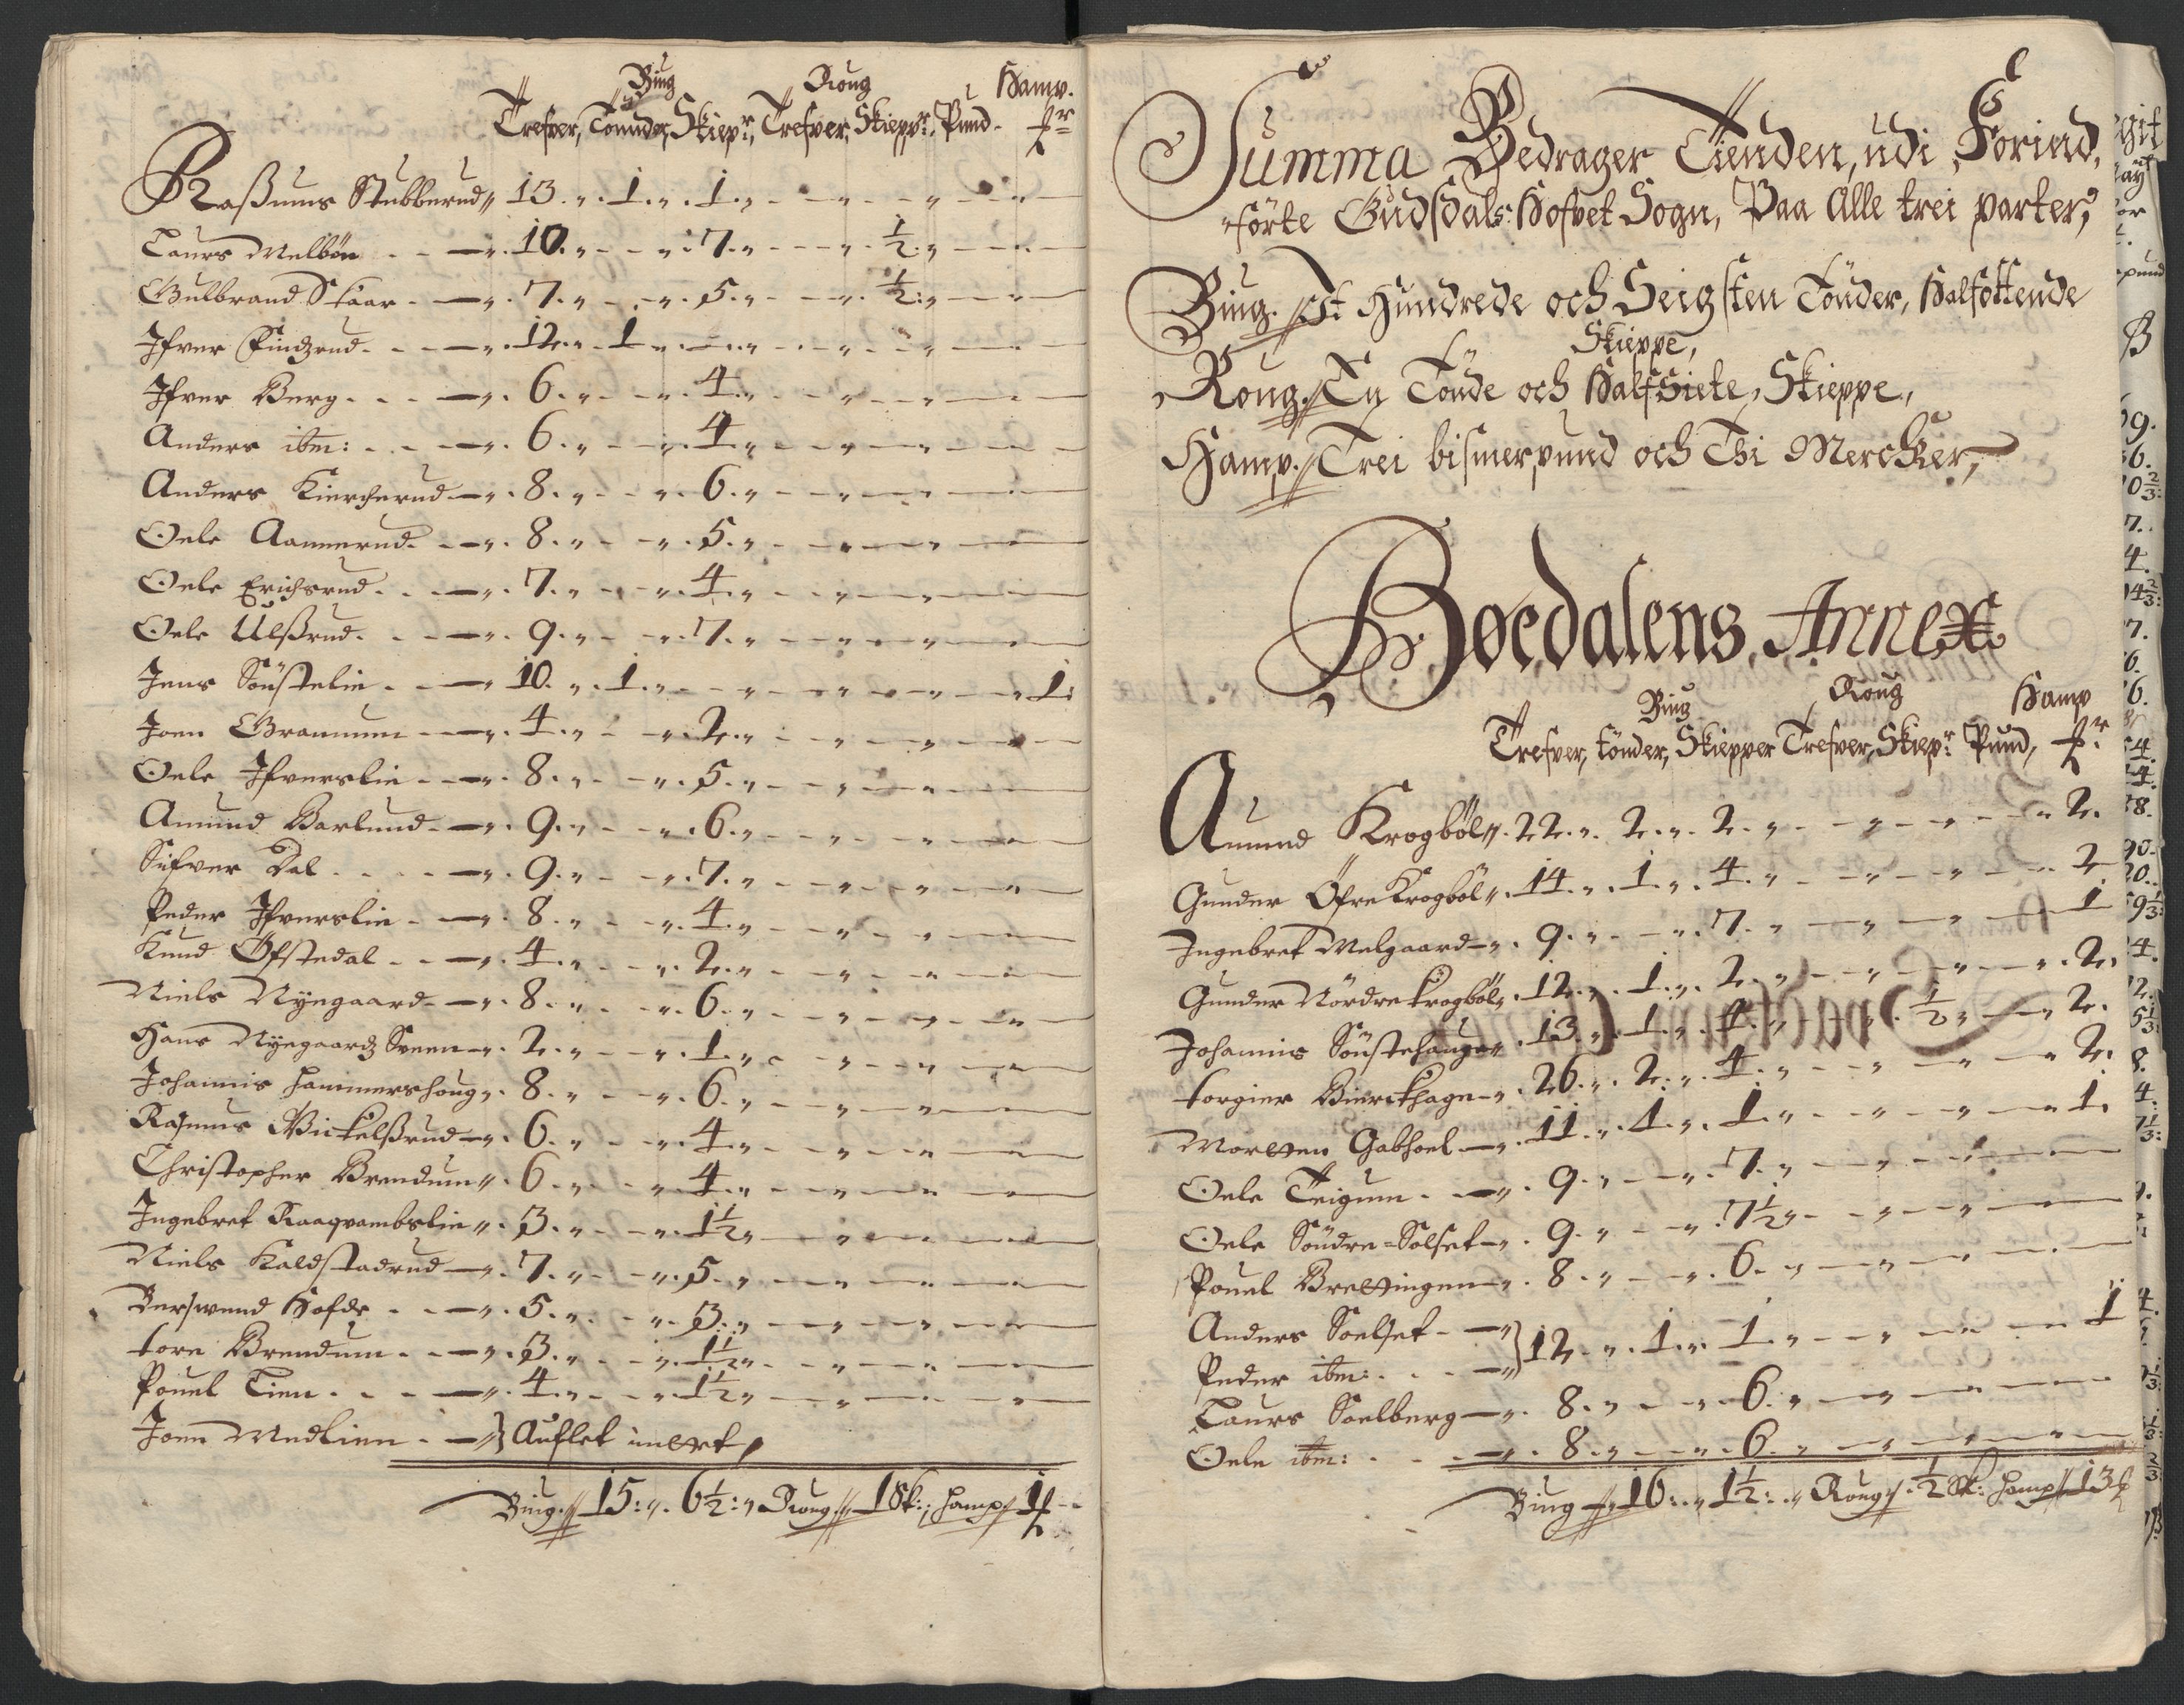 Biug Roug Hamp.
Trefver, Tønnder, Skiepr, Trefver, Skieppr, Pund
Raßmus Stubberud 13. 1. 1.
Laurs Melbön 10. 7. ½
Gulbrand Skaar 7. 5. ½
Ifver Findzrud 12. 1
Ifver Berg 6. 4.
Anders ibm: 6. 4.
Anders Kiercherud 8. 6.
Oele Aannerud 8. 5.
Oele Erichsrud 7. 4.
Oele Ulßrud 9. 7.
Jens Söustelie 10. 1. 1
Joen Gramum 4. 2.
Oele Ifverslie 8. 5.
Amund Barlund 9. 6.
Sifver Dal 9. 7.
Peder Ifverslie 8. 4.
Knud Öfstedal 4. 2.
Niels Nyegaard 8. 6.
Hans Nyegaardz Sveen 2. 1.
Johannis Hammershoug 8. 6.
Rasmus Mickelßrud 6. 4.
Christopher Brendum 6. 4.
Ingebret Raaqvambslie 3. 1½
Niels Kaldstadrud 7. 5.
Berswend Hofde 5. 3.
Tore Brendum 3. 1½
Pouel Lien 4. 1½
Joen Medlien Auflet intet
Biug 15: 6½: Roug 1 Sk: Hamp 1
Summa Bedrager Tienden, udi Forind,
förte Gudsdals: Hofvet Sogn, Paa Alle trei parter,
Biug. Et Hundrede och Seigsten Tönder, Halfottende
Skieppe,
Roug. En Tönde och Halfsiete, Skieppe,
Hamp. Trei bismerpund och Thi Mercker,
Bøedalens Annex
Biug Roug Hamp
Trefver, tönder, Skiepper Trefver, Skiepr Pund,
Amund Krogböl 22. 2. 2. 2.
Gunder Öfre Krogböl 14. 1. 4. 2
Ingebret Melgaard 9. 7. 1
Gunder Nördre Krogböl 12. 1. 2. 2.
Johannis Söustehauge 13. 1. 4. ½ 2.
Torgier Bierckhage 26. 2. 4. 2.
Morten Gabhoel 11. 1. 1. 1.
Oele Teigum 9. 7.
Oele Söudre-Solset 9. 7½
Pouel Brettingen 8. 6.
Anders Soelset
Peder ibm: 12. 1. 1. 1
Laurs Soelberg 8. 6.
Oele ibm: 8. 6.
Biug 16: 1½: Roug ½ Sk: Hamp 13